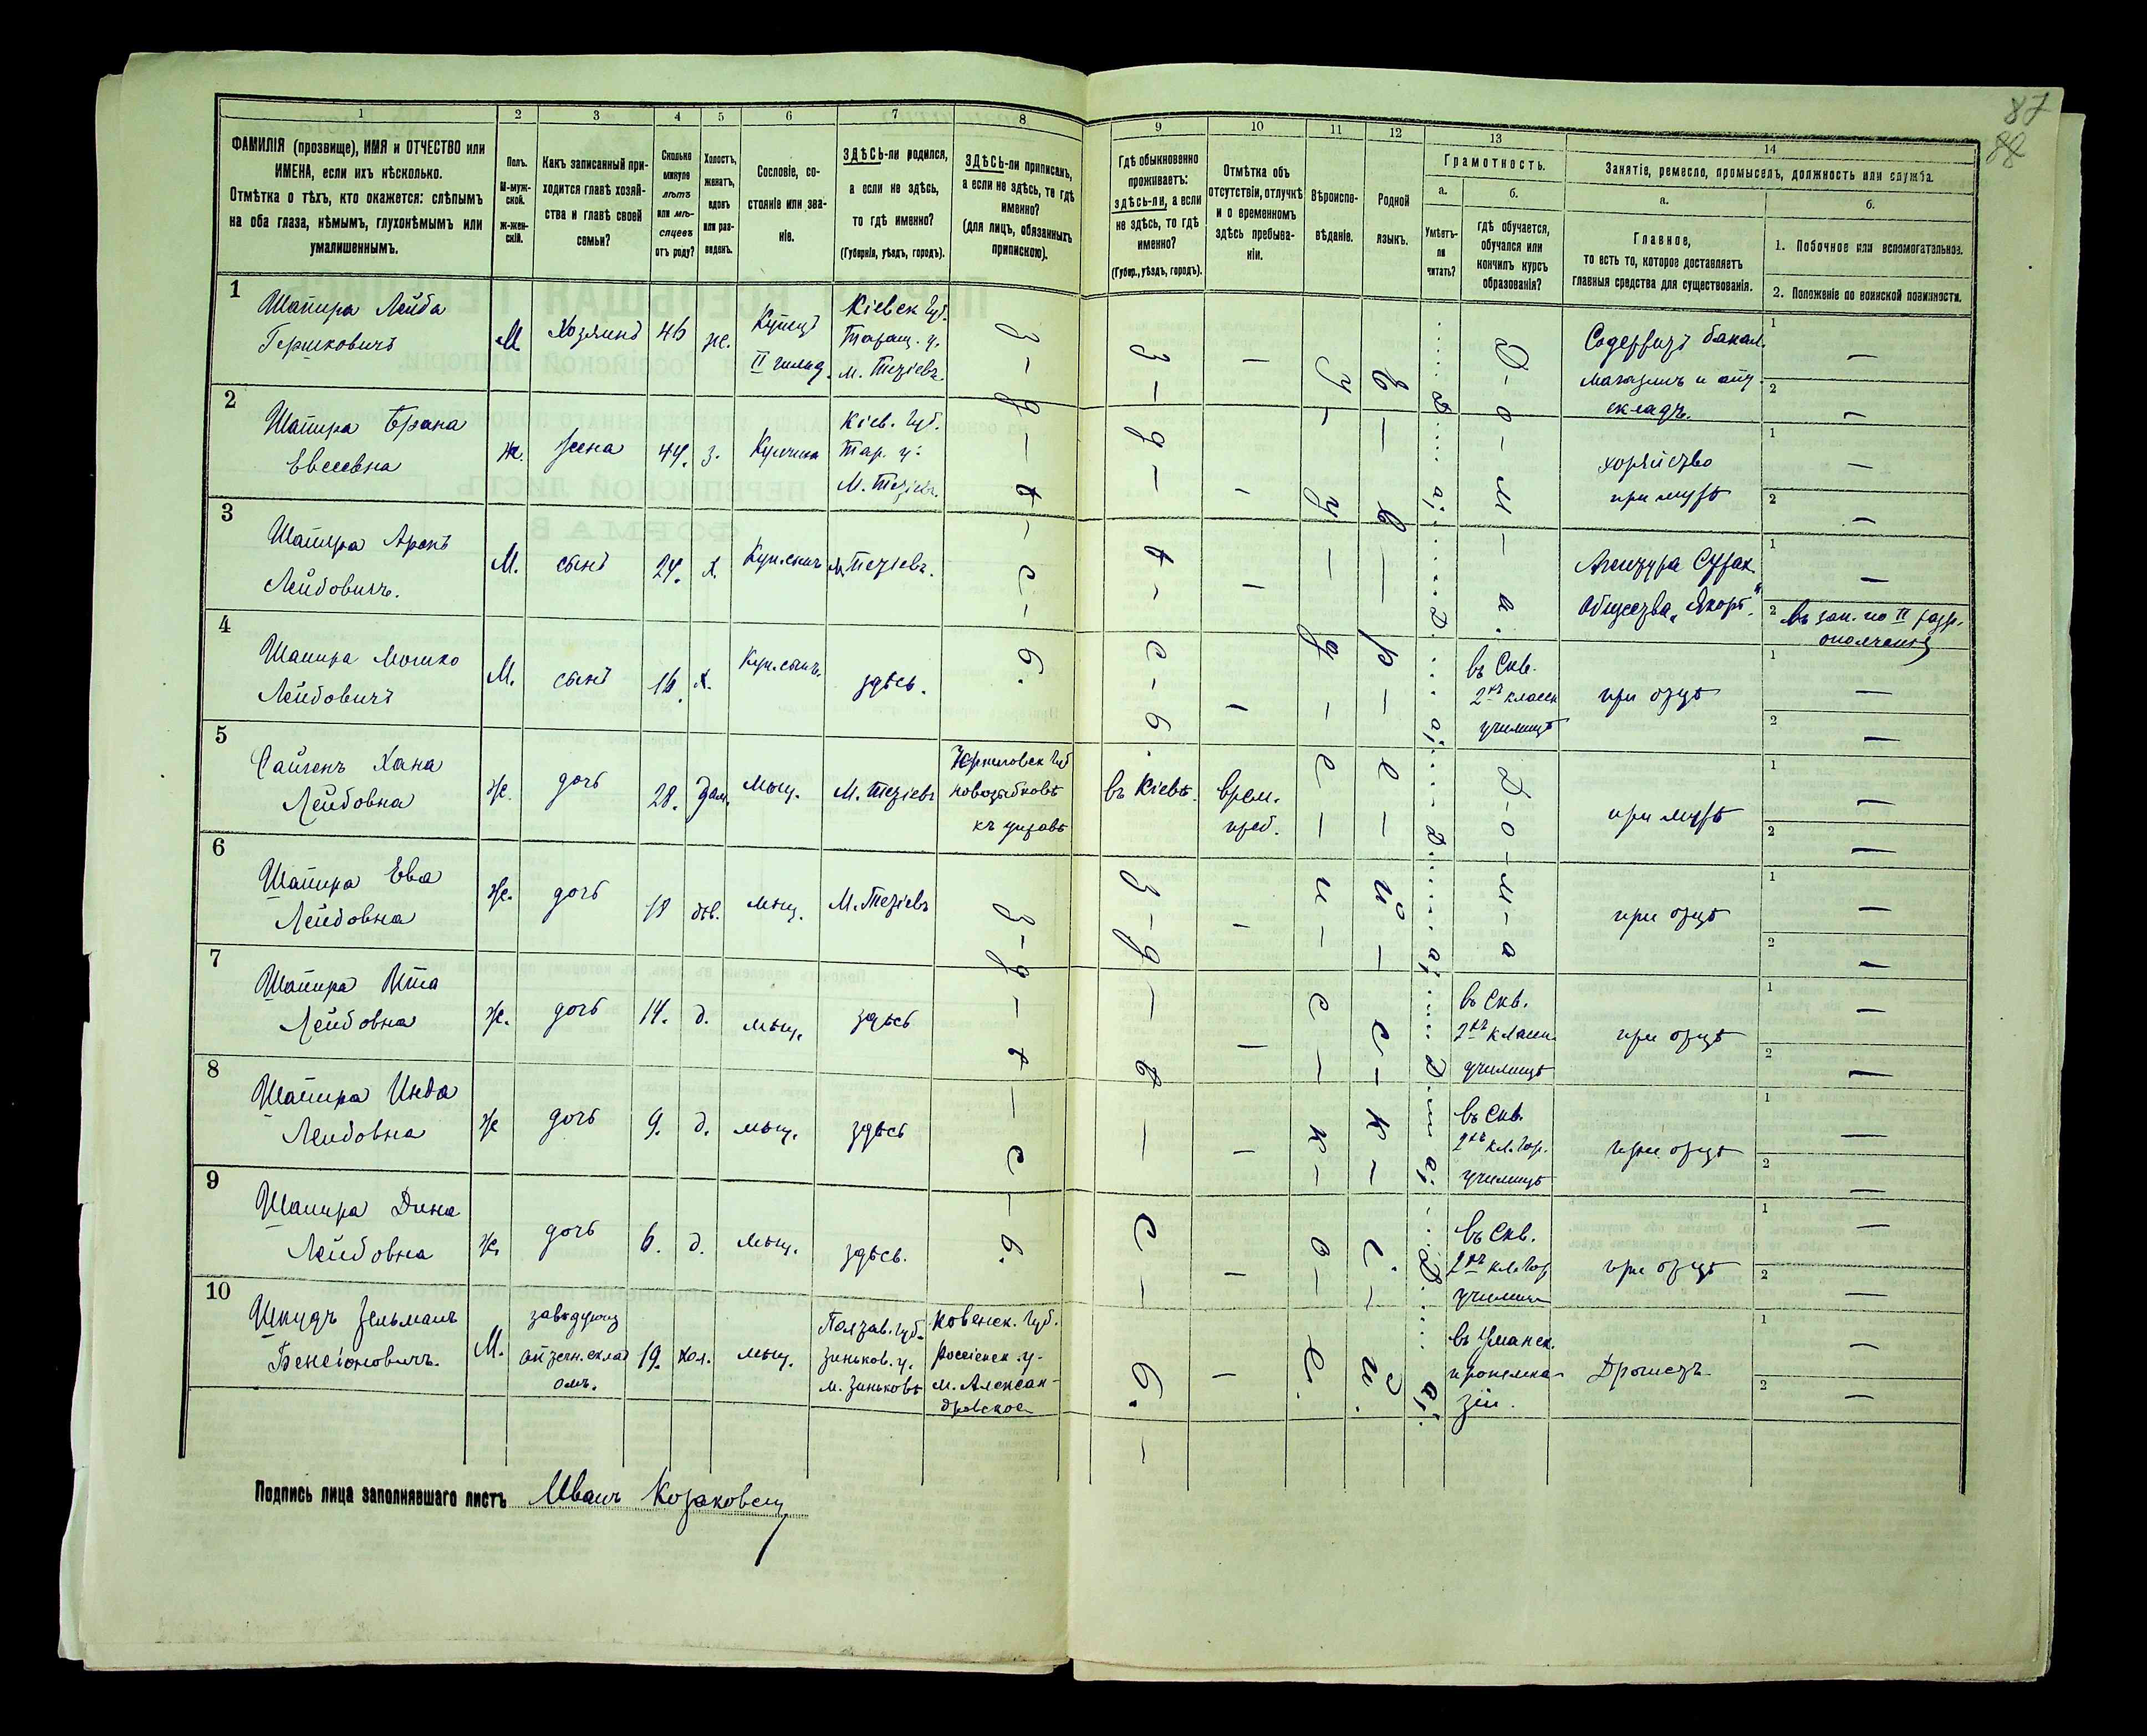 87
88
1
2
3
4
5
6
7
8
9
10
11
12
13
14
ФАМИЛІЯ (прозвище), ИМЯ и ОТЧЕСТВО или
ИМЕНА, если ихъ нѣсколько.
Отмѣтка о тѣхъ, кто окажется: слѣпымъ
на оба глаза, нѣмымъ, глухонѣмымъ или
умалишеннымъ.
Полъ.
М-муж-
ской.
Ж-жен-
скій.
Какъ записанный при-
ходится главѣ хозяй-
ства и главѣ своей
семьи?
Сколько
минуло
лѣтъ
или мѣ-
сяцевъ
отъ роду?
Холостъ,
женатъ,
вдовъ
или раз-
веденъ.
Сословіе, со-
стояніе или зва-
ніе.
ЗДѢСЬ-ли родился,
а если не здѣсь,
то гдѣ именно?
(Губернія, уѣздъ, городъ).
ЗДѢСЬ-ли приписанъ,
а если не здѣсь, то гдѣ
именно?
(для лицъ, обязанныхъ
припискою).
Гдѣ обыкновенно
проживаетъ:
здѣсь-ли, а если
не здѣсь, то гдѣ
именно?
(Губер., уѣздъ, городъ).
Отмѣтка объ
отсутствіи, отлучкѣ
и о временномъ
здѣсь пребыва-
ніи.
Вѣроиспо-
вѣданіе.
Родной
языкъ.
Грамотность.
а.
б.
Умѣетъ-
ли
читать?
гдѣ обучается,
обучался или
кончилъ курсъ
образованія?
Занятіе, ремесло, промыселъ, должность или служба.
а.
б.
Главное,
то есть то, которое доставляетъ
главныя средства для существованія.
1. Побочное или вспомогательное.
2. Положеніе по воинской повинности.
1
Шапира Лейба
Гершковичъ
М
Хозяинъ
46
же.
Купецъ
II гильд.
Кіевск Губ.
Таращ. у.
м. Тетіевъ.
З-д-ѣ-с-ь.
З-д-ѣ-с-ь.
—
І-у-д-е-й-с-к-о-е.
Е-в-р-е-й-с-к-і-й.
Да
Д-о-м-а.
Содержитъ бакал.
магазинъ и апт.
складъ.
1 —
2 —
2
Шапира Брана
Евсеевна
Ж.
жена
44.
з.
Купчиха
Кіев. Губ.
Тар. у.
М. Тетіевъ.
—
Да
хозяйство
при мужѣ
1 —
2 —
3
Шапира Аронъ
Лейбовичъ.
М.
сынъ
24.
х.
Куп.сынъ
м. Тетіевъ.
—
Да
Агентура Страх.
Общества „Якорь."
1 —
2 въ зап. по II разр.
ополченія
4
Шапира Мошко
Лейбовичъ
М.
сынъ
16.
х.
Куп.сынъ.
здѣсь.
—
Да
въ Скв.
2хъ классн
училищѣ
при отцѣ
1 —
2 —
5
Хана
Лейбовна
Ж.
дочь
28.
Зам.
мѣщ.
М. Тетіевъ
Черниговск Губ
новозыбковѣ
къ управѣ
въ Кіевѣ.
врем.
преб.
Да
Д-о-м-а
при мужѣ
1 —
2 —
6
Шапира Ева
Лейбовна
Ж.
дочь
18
дѣв.
мѣщ.
М. Тетіевъ
З-д-ѣ-с-ь.
З-д-ѣ-с-ь.
—
Да
при отцѣ
1 —
2 —
7
Шапира Ита
Лейбовна
Ж.
дочь
14.
д.
мѣщ.
здѣсь
—
Да
въ Скв.
2хъ классн.
училищѣ
при отцѣ
1 —
2 —
8
Шапира Инда
Лейбовна
Ж
дочь
9.
д.
мѣщ.
здѣсь
—
Да
въ Скв.
2хъ кл. Гор.
училищѣ
при отцѣ
1 —
2 —
9
Шапира Дина
Лейбовна
Ж
дочь
6.
д.
мѣщ.
здѣсь.
—
Да
въ Скв.
2хъ кл. Гор
училищѣ
при отцѣ
1 —
2 —
10
Шкудъ Зельманъ
Бенсіоновичъ.
М.
завѣдующ
аптечн. склад
омъ.
19.
хол.
мѣщ.
Полтав. Губ.
Зиньков. у.
м. Зиньковъ
Ковенск. Губ.
Россіенск. у.
м. Алексан-
дровское
—
въ Уманск.
прогимна-
зіи.
Дрогистъ
1 —
2 —
Подпись лица заполнявшаго листъ Иванъ